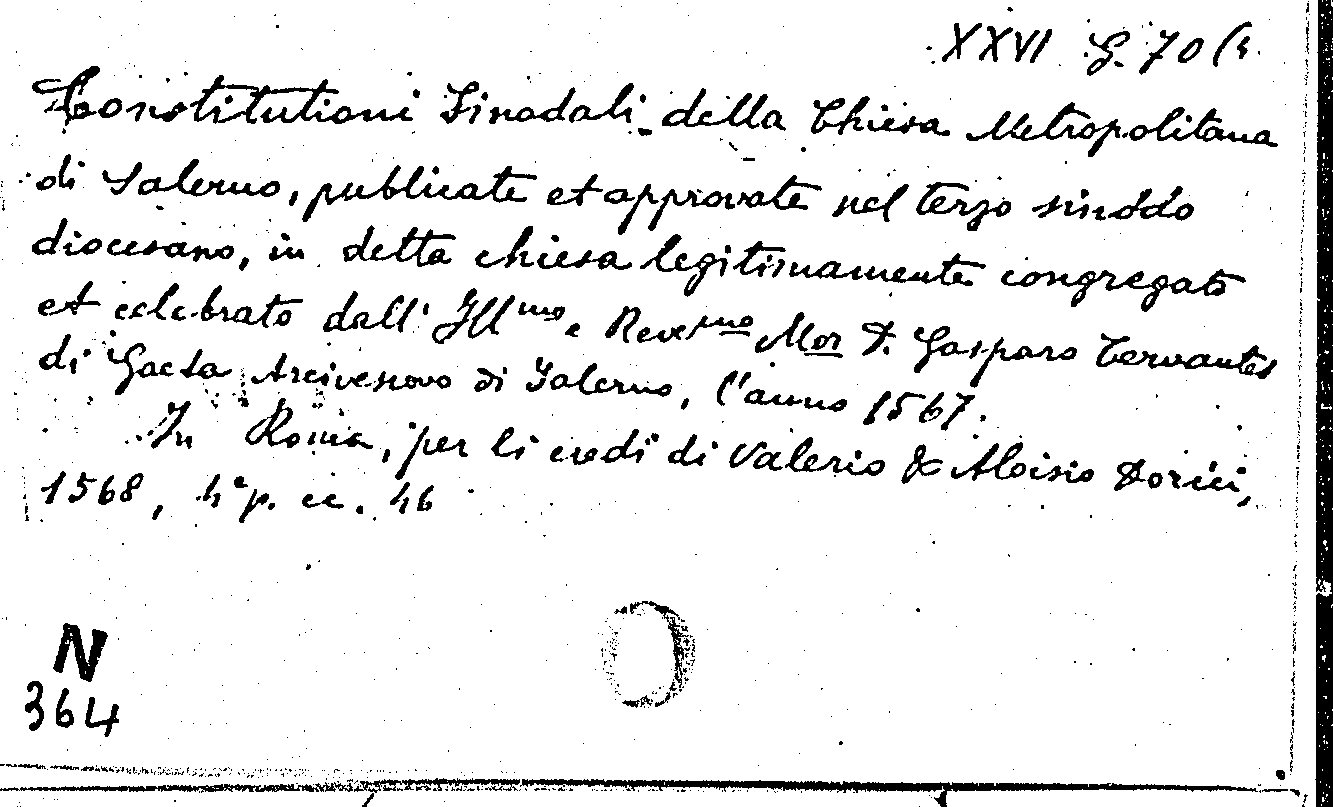 XXVI G. 70 (4
Constitutioni Sinodali della Chiesa Metropolitana
di Salerno, publicate et approvate nel terzo sinodo
diocesano, in detta chiesa legitimamente congregato
et celebrato dall' Ill.mo e Rever.mo Mor D. Gasparo Cervantes
di Gaeta Arcivescovo di Salerno, l'anno 1567.
In Roma, per li eredi di Valerio & Aloisio Dorici,
1568, 4° p. cc. 46
N
364